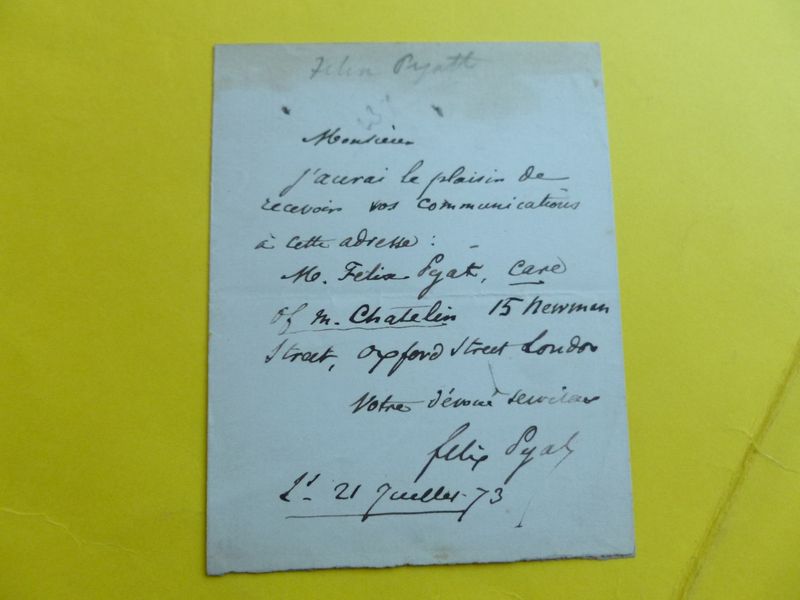 Felix Pyatt
Monsieur
J'aurai le plaisir de
recevoir vos communications
à cette adresse :
M. Félix Pyat, care
of M. Chatelin 15 Newman
Street, Oxford Street London
Votre dévoué serviteur
Félix Pyat
21 Juillet 73